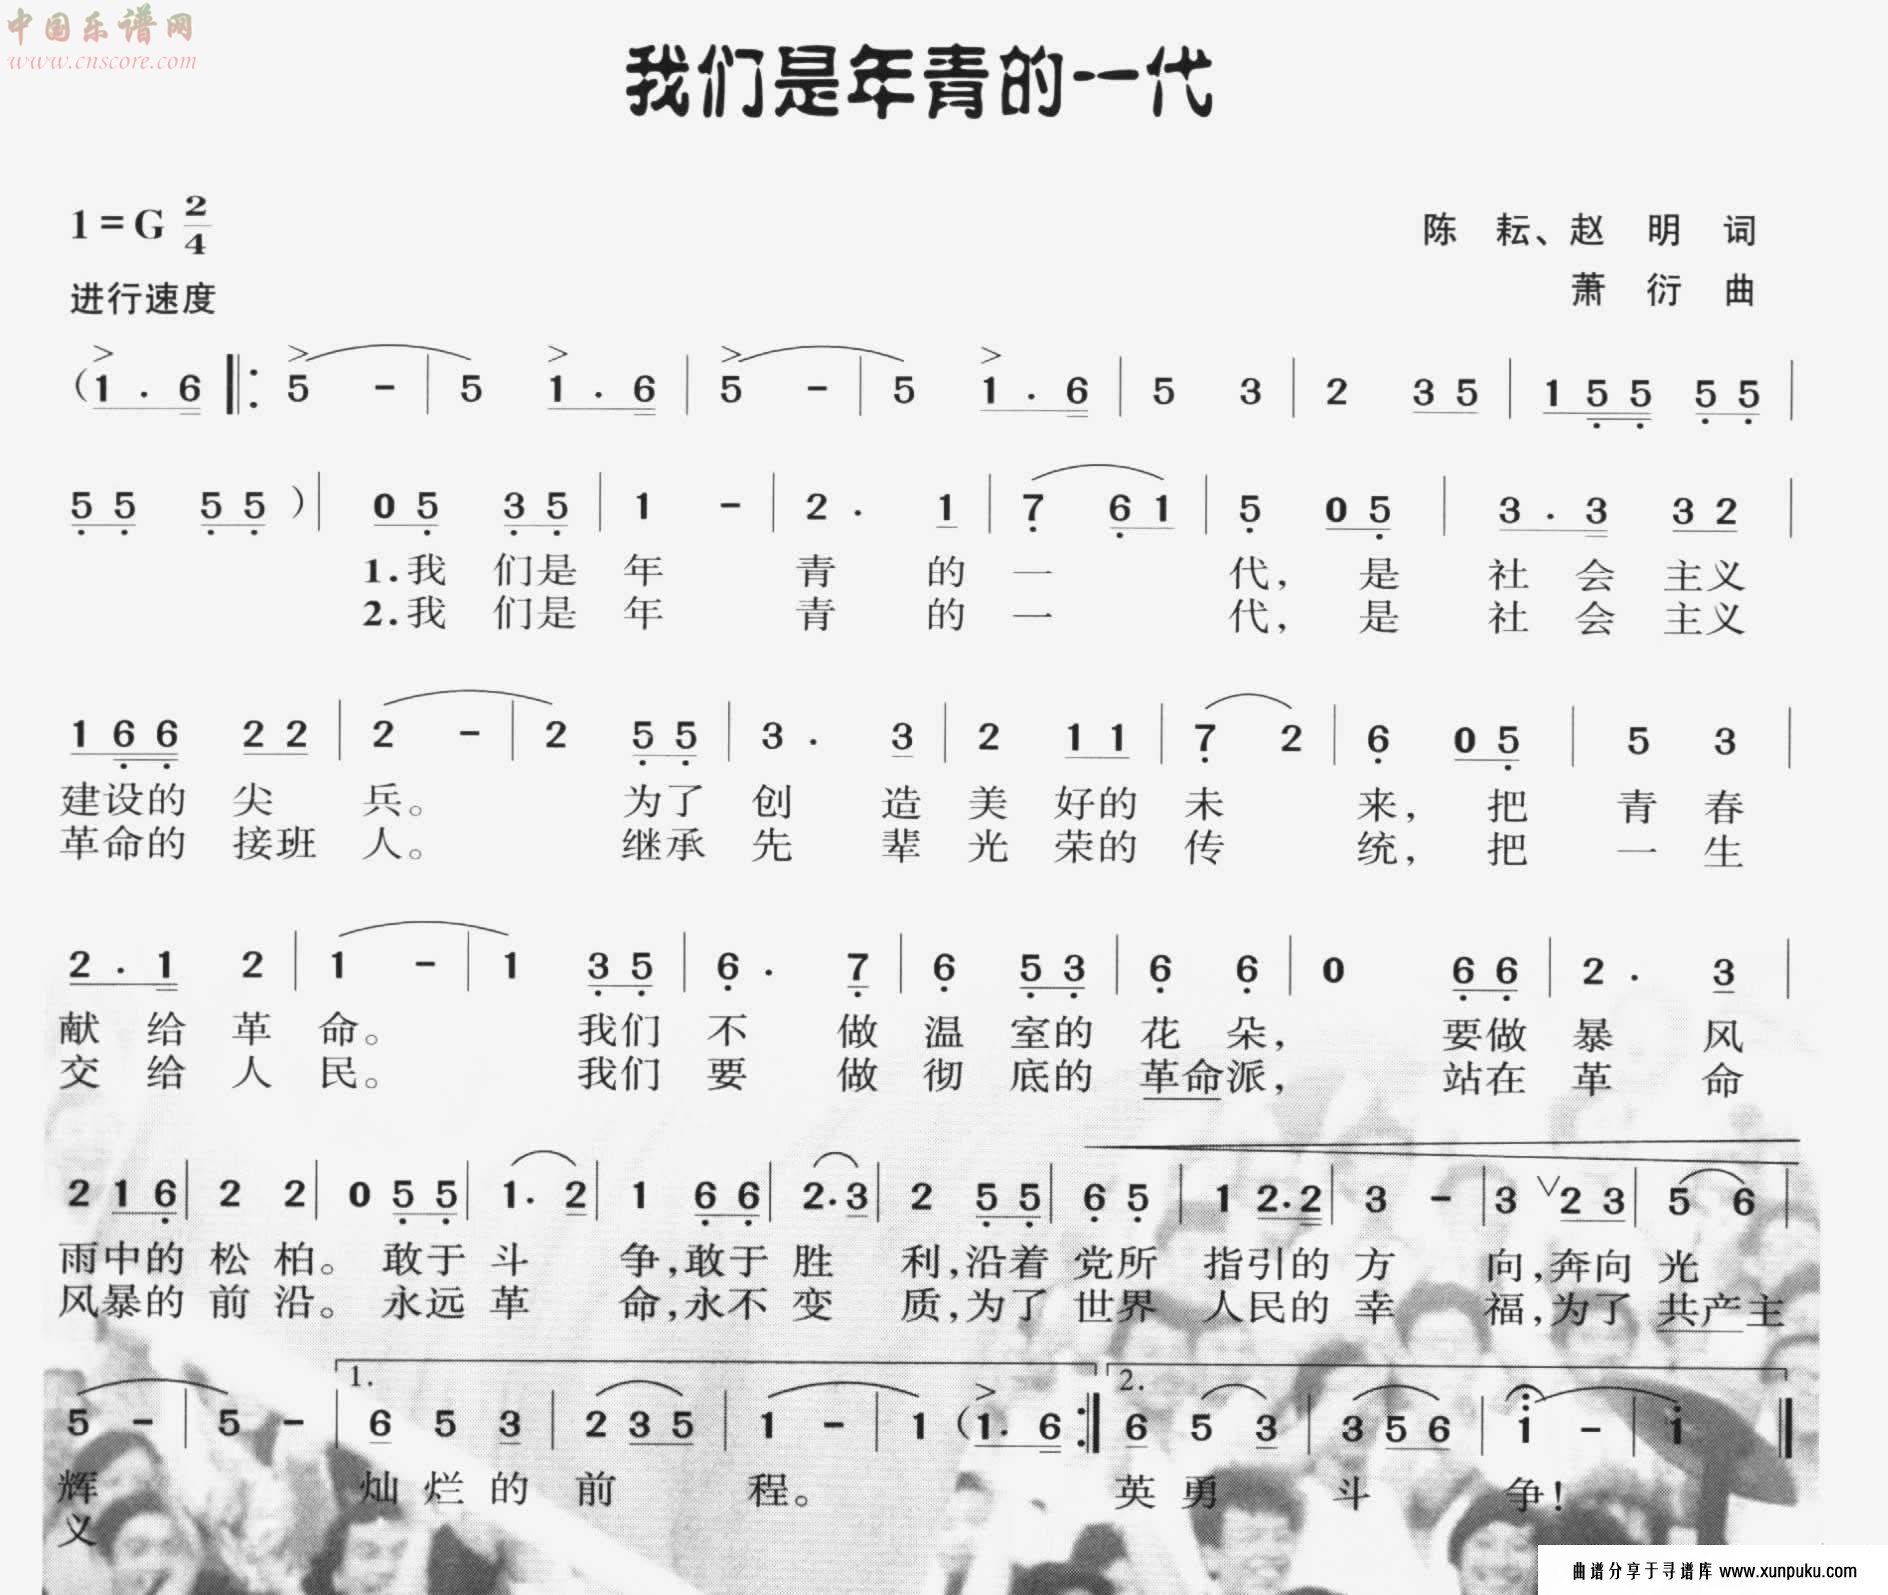 中国乐谱网
www.cnscore.com
我们是年青的一代
1=G 2/4
陈 耘、赵 明 词
进行速度
萧 衍 曲
(1 . 6 ‖: 5 - | 5 1 . 6 | 5 - | 5 1 . 6 | 5 3 | 2 3 5 | 1 5 5 5 5 |
5 5 5 5 ) | 0 5 3 5 | 1 - | 2 . 1 | 7 6 1 | 5 0 5 | 3 . 3 3 2 |
1.我 们是 年 青 的 一 代, 是 社 会 主义
2.我 们是 年 青 的 一 代, 是 社 会 主义
1 6 6 2 2 | 2 - | 2 5 5 | 3 . 3 | 2 1 1 | 7 2 | 6 0 5 | 5 3 |
建设的 尖 兵。 为了 创 造 美 好的 未 来, 把 青 春
革命的 接班 人。 继承 先 辈 光 荣的 传 统, 把 一 生
2 . 1 2 | 1 - | 1 3 5 | 6 . 7 | 6 5 3 | 6 6 | 0 6 6 | 2 . 3 |
献 给 革 命。 我们 不 做 温 室的 花 朵, 要做 暴 风
交 给 人 民。 我们 要 做 彻 底的 革命派, 站在 革 命
2 1 6 | 2 2 | 0 5 5 | 1. 2 | 1 6 6 | 2.3 | 2 5 5 | 6 5 | 1 2.2 | 3 - | 3 ∨2 3 | 5 6 |
雨中的 松 柏。 敢于 斗 争,敢于 胜 利,沿着 党所 指引的 方 向,奔向 光
风暴的 前 沿。 永远 革 命,永不 变 质,为了 世界 人民的 幸 福,为了 共产主
1. 2.
5 - | 5 - | 6 5 3 | 2 3 5 | 1 - | 1 (1. 6 :‖ 6 5 3 | 3 5 6 | i - | i ‖
辉 灿 烂 的 前 程。 英 勇 斗 争!
义
曲谱分享于寻谱库 www.xunpuku.com